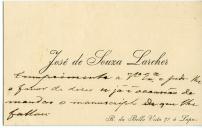 José de Souza Larcher
Comprimenta a V. Ex.ª e pede lhe
o favor de dizer se já é occasião de
mandar o manuscripto de que lhe
fallou
R. da Bella Vista 71 á Lapa